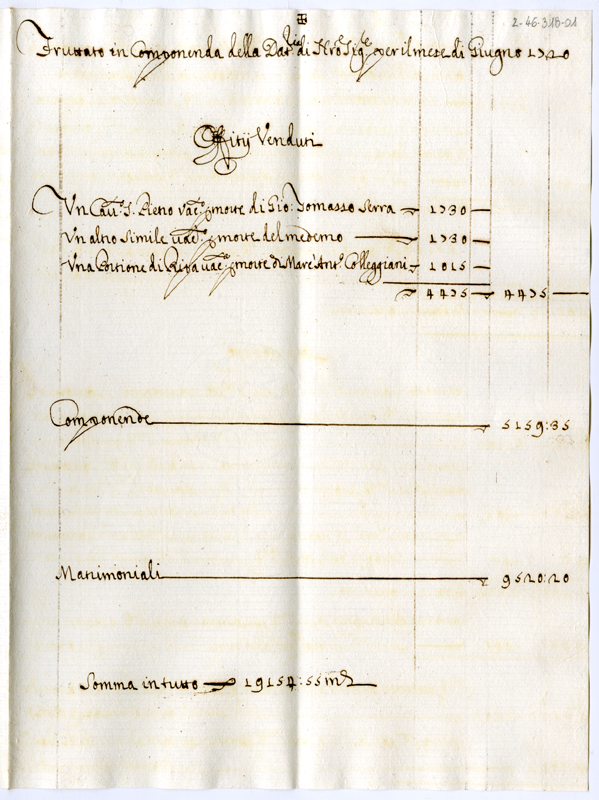 2-46-318-01
Fruttato in Componenda della Dat.ria di N'ro Sig.re per il mese di Giugno 1720
Offitij Venduti
Un Cau.to S. Pietro vac.e p morte di Gio: Tomasso Serra — 1730 —
Un altro simile vac.e p morte del medemo — 1730 —
Una Portione di Ripa vac.e p morte di Marc'Ant.o Colleggiani — 1015 —
— 4475 — 4475 —
Componende — 5159:35
Matrimoniali — 9520:20
Somma in tutto — 19154:55 m.ta